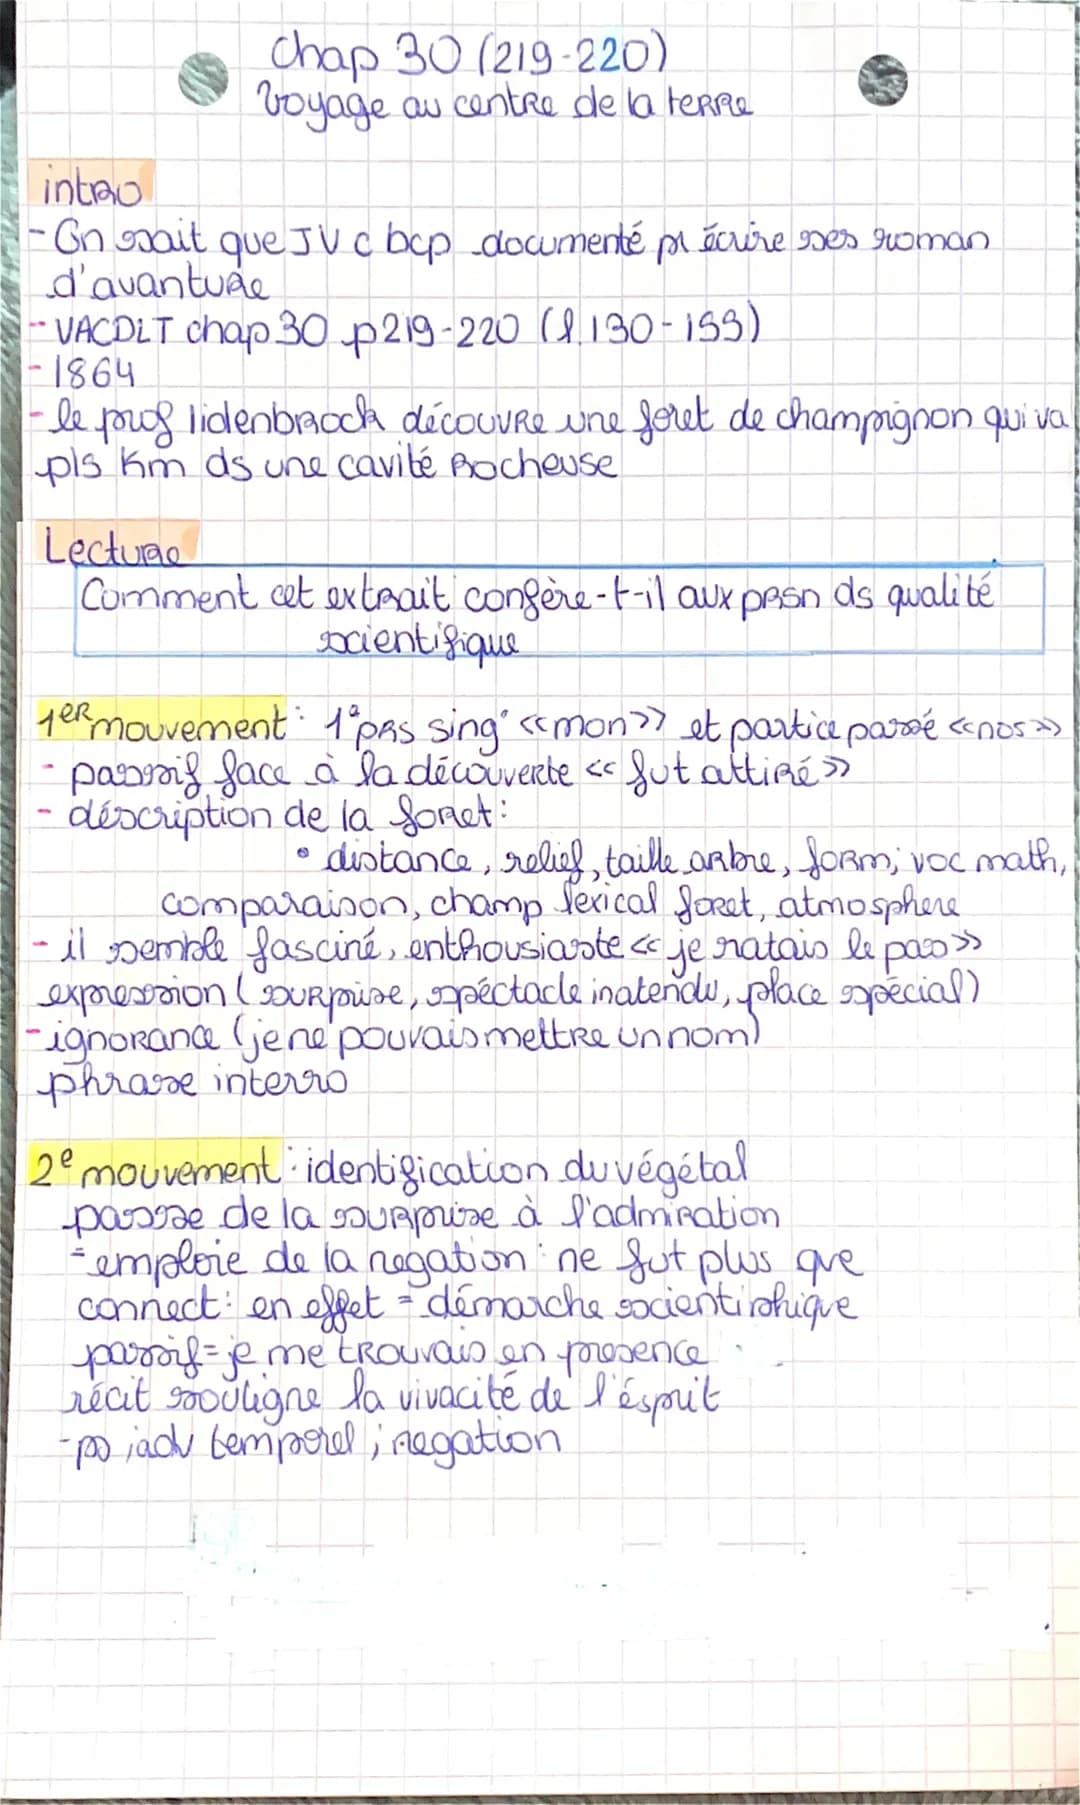 Chap 30 (219-220)
Voyage au centre de la terre
intro
- On sait que JV c bcp documenté pr écrire ses roman
d'avanture
- VACDLT chap 30 p219-220 (l.130-155)
- 1864
- le prof lidenbrock découvre une foret de champignon qui va
pls km ds une cavité Rocheuse
Lecture
Comment cet extrait confère-t-il aux prsn ds qualité
scientifique
1er mouvement : 1° prs sing° «mon» et partice passé «nos»
- passif face à la découverte «fut attiré»
- déscription de la foret :
• distance, relief, taille arbre, form; voc math,
comparaison, champ lexical foret, atmosphere
- il semble fasciné, enthousiaste «je ratais le pas»
expression (surprise, spéctacle inatendu, place spécial)
- ignorance (je ne pouvais mettre un nom)
phrase interro
2e mouvement : identification du végétal
passse de la surprise à l'admiration
= emploie de la negation : ne fut plus que
connect : en effet = démarche scientiphique
passif = je me trouvais en presence
récit souligne la vivacité de l'ésprit
- ps ; adv temporel ; negation